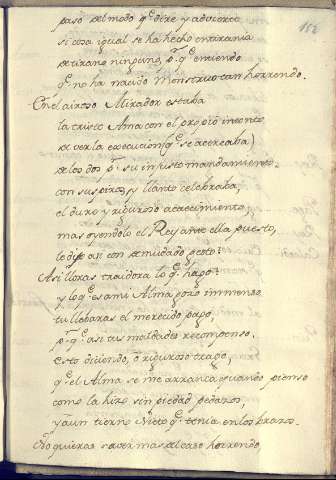 152
paso del modo q.e dire y advierto
si cosa igual se ha hecho en tirania
de tirano ninguno, p.r q.e entiendo
q.e no ha nacido Monstruo tan horrendo.
En el ayroso Mirador estaba
la triste Ama con el proprio intento
de ver la execucion (q.e se acercaba)
de los dos p.r su injusto mandamiento.
con suspiros, y llanto celebraba,
el duro y riguroso acaecimiento,
mas oyendolo el Rey ante ella puesto,
le dije asi con demudado gesto:
Asi lloras traidora lo q.e hago?
y lo q.e es a mi Alma gozo immenso
tu llebaras el merecido pago,
p.r q.e asi tus maldades recompenso.
esto diciendo, ò riguroso trago,
q.e el Alma se me arranca quando pienso
como la hizo sin piedad pedazos,
y à un tierno Nieto q.e tenia en los brazos.
No quieras saver mas del caso horrendo,